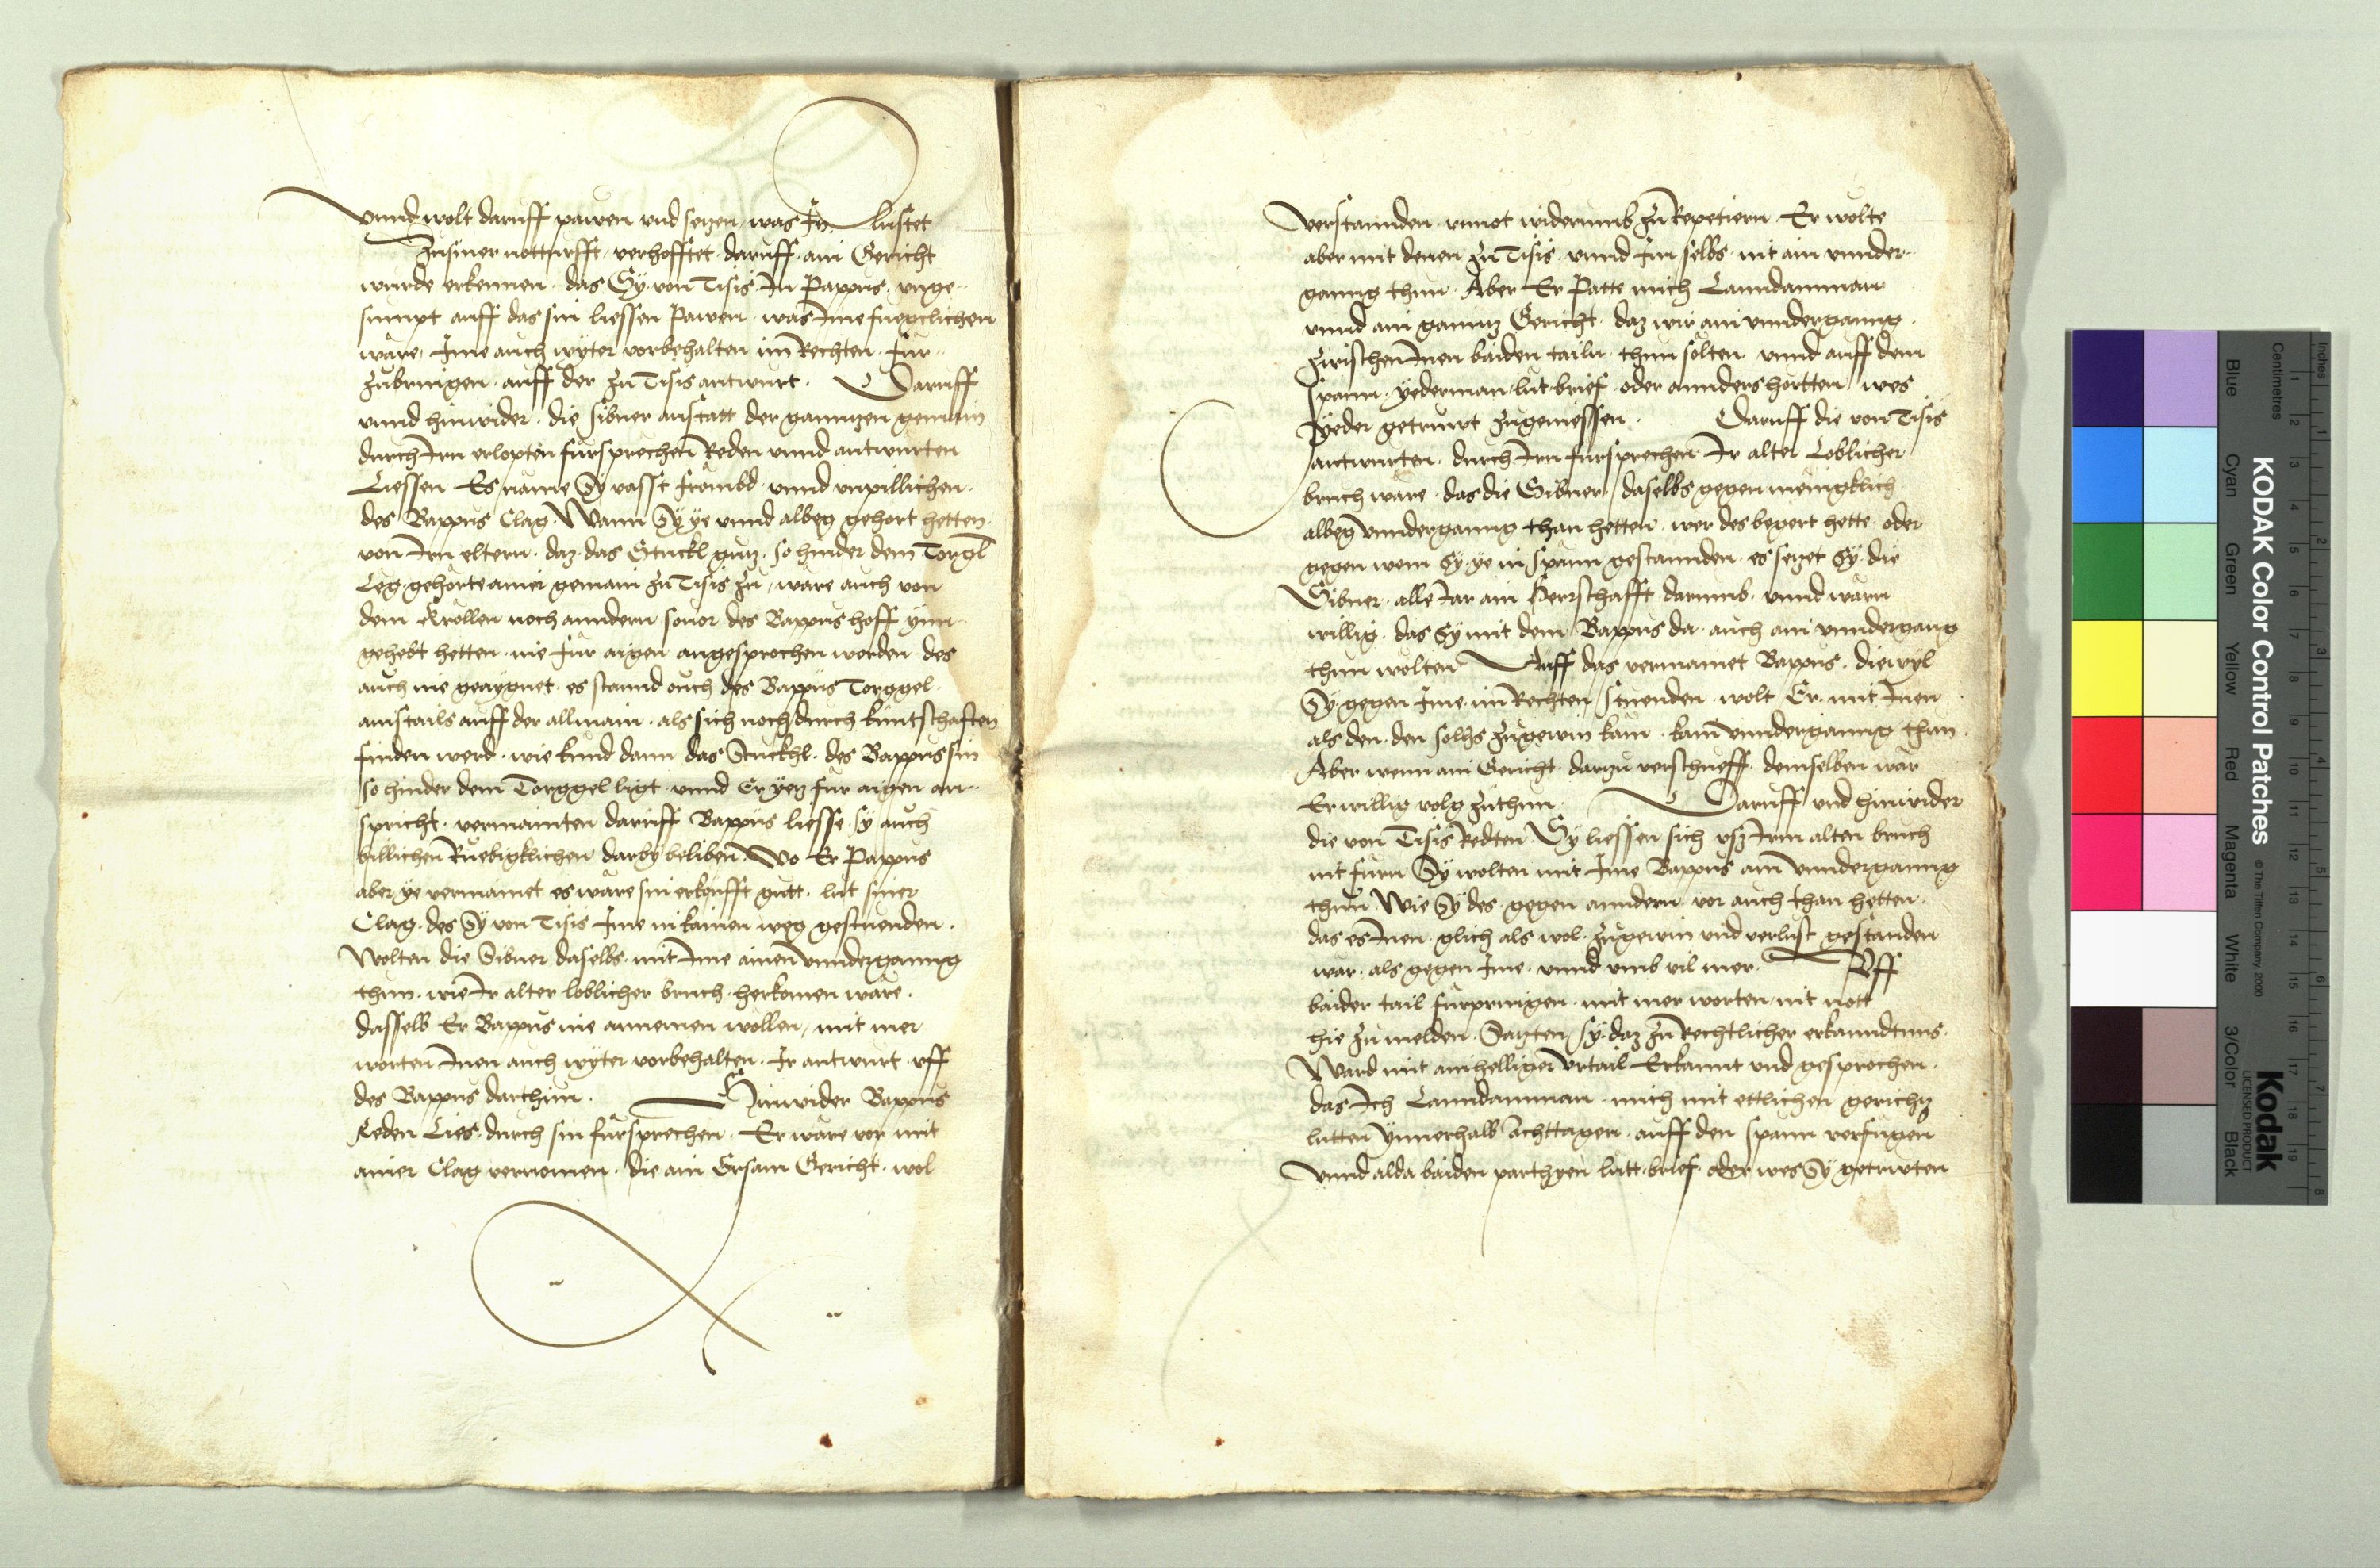 vnnd wolt daruff pawen vnd setzen was In lustet
zu siner notturfft verhofftet daruff ain Gericht
wurde erkennen das Sy von Tisis In Pappus vnge-
sumpt auff das sin liessen Pawen was Ime fuegclichen
wäre, Ime auch wyter vorbehalten im Rechten für-
zubringen auff der zu Tisis antwurt. Daruff
vnnd hinwider die sibner anstatt der ganntzen gemain
durch Irn erlopten fürsprechen Reden vnnd antwurten
Liessen Es näme Sy vasst frömbd vnnd vnpillichen
des Bappus Clag Wann Sy ye vnnd albeg gehört hetten
von Irn eltern daz das Stuckl gutz so hinder dem Torgl
Leg gehörte ainer gemain zu Tisis zu, wäre auch von
dem Krollen noch anndern so vor des Bappus hoff ynn-
gehebt hetten nie für aigen angesprochen worden des
auch nie geaygnet es stannd ouch des Bappus Torggel
ainstails auff der allmain als sich noch durch kuntschafften
finden werd wie kund dann das Stuckhl des Bappus sin
so hinder dem Torggel ligt vnnd Er yetz für aigen an-
spricht vermainten daruff Bappus liesse sy auch
billichen Ruebigklichen darby beliben Wo Er Pappus
aber ye vermainet es wäre sin erkoufft gutt lut siner
Clag des Sy von Tisis Ime in kainen weg gestuenden.
Wolten die Sibner daselbs mit Ime ainen vnnderganng
thun wie Ir alter loblicher bruch herkomen wäre.
dasselb Er Bappus nie annemen wöllen, mit mer
worten Inen auch wyter vorbehalten Ir antwurt vff
des Bappus darthun. Hinwider Bappus
Reden Lies durch sin fürsprechen Er wäre vor mit
ainer Clag vernomen die ain Ersam Gericht wol
verstannden vnnot widerumb zu Repetiern Er wolte
aber mit denen zu Tisis vnnd Im selbs nit ain vnnder-
ganng thun Aber Er Patte mich Lanndamman
vnnd ain ganntz Gericht daz wir ain vnnderganng
zwischen Inen baiden tailn thun solten vnnd auff dem
Spann yederman lut brief oder annders hortten wes
Yeder getruwt zugeniessen. Daruff die von Tisis
antwurten durch Irn fürsprechen Ir alter Loblicher
bruch wäre das die Sibner daselbs gegen menigklich
albeg vnnderganng than hetten wer des begert hette oder
gegen wem Sy ye in Spann gestannden es setzet Sy die
Sibner alle Jar ain Herrschafft darumb vnnd wärn
willig das Sy mit dem Bappus da auch ain vnndergang
thun wolten Auff das vermainet Bappus diewyl
Sy gegen Ime im Rechten stuenden wolt Er mit Inen
als den den solhs zu gewin kam kain vnnderganng than
Aber wenn ain Gericht darzu verschueff demselben wär
Er willig volg zuthun. Daruff vnd hinwider
die von Tisis Redten Sy liessen sich vsz Irm alten bruch
nit fürn Sy wolten mit Ime Bappus ain vnnderganng
thun Wie Sy des gegen anndern vor auch than hetten
das es Inen glich als wol zugewin vnd verlust gestanden
wär als gegen Ime vnnd vmb vil mer. Vff
baider tail fürpringen mit mer worten nit nott
hie zu melden Satzten Sy daz zu Rechtlicher erkanndtnus
Ward mit ainhelliger Vrtail Erkannt vnd gesprochen
das Ich Lanndamman mich mit ettlichen gerichtz
lütten ynnerhalb achttagen auff den Spann verfügen
vnnd alda baiden parthyen lutt brief oder wes Sy getruwten
KODAK Color Control Patches
© The Tiffen Company, 2000
Kodak
LICENSED PRODUCT
Blue
Cyan
Green
Yellow
Red
Magenta
White
3/Color
Black
Inches
Centimetres
1 2 3 4 5 6 7 8
1 2 3 4 5 6 7 8 9 10 11 12 13 14 15 16 17 18 19